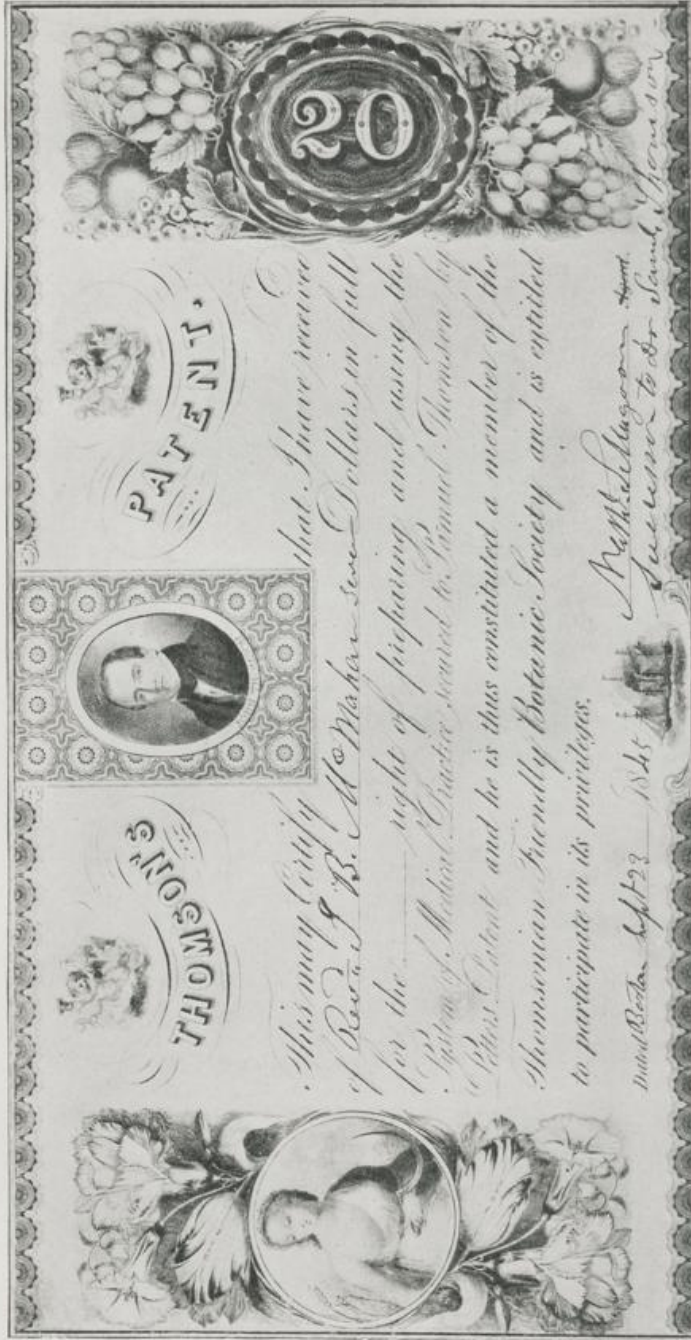 THOMSON'S PATENT.
20
This may Certify that I have received
of Revd. J B. McMahon seven Dollars in full
for the right of preparing and using the
System of Medical Practice secured to Samuel Thomson by
Letters Patent and he is thus constituted a member of the
Thomsonian Friendly Botanic Society and is entitled
to participate in its privileges.
Dated Boston Sept 23 1845
Successor to Dr Saml. Thomson